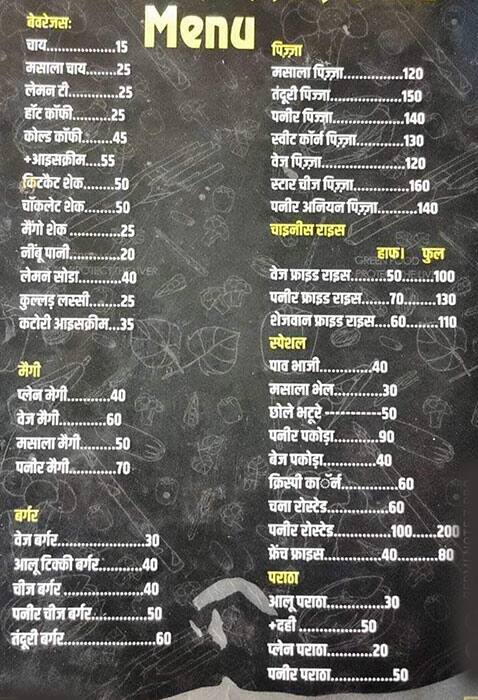 Menu
बेवरेजसः
चाय..............15
मसाला चाय........25
लेमन टी............25
हॉट कॉफी..........25
कोल्ड कॉफी........45
+आइसक्रीम....55
किटकैट शेक........50
चॉकलेट शेक........50
मैंगो शेक ............25
नींबू पानी............20
लेमन सोडा...........40
कुल्लड़ लस्सी......25
कटोरी आइसक्रीम...35
मैगी
प्लेन मेगी...........40
वेज मैगी...........60
मसाला मैगी........50
पनीर मैगी..........70
बर्गर
वेज बर्गर....................30
आलू टिक्की बर्गर..........40
चीज बर्गर ...................40
पनीर चीज बर्गर.............50
तंदूरी बर्गर...................60
पिज़्ज़ा
मसाला पिज़्ज़ा..............120
तंदूरी पिज्जा................150
पनीर पिज़्ज़ा................140
स्वीट कॉर्न पिज़्ज़ा...........130
वेज पिज़्ज़ा...................120
स्टार चीज पिज़्ज़ा...........160
पनीर अनियन पिज़्ज़ा.........140
चाइनीस राइस
हाफ। फुल
वेज फ्राइड राइस.......50.......100
पनीर फ्राइड राइस......70.......130
शेजवान फ्राइड राइस....60.......110
स्पेशल
पाव भाजी............40
मसाला भेल...........30
छोले भटूरे -----------50
पनीर पकोड़ा..........90
बेज पकोड़ा...........40
क्रिस्पी कॉर्न...........60
चना रोस्टेड...........60
पनीर रोस्टेड...........100......200
फ्रेंच फ्राइस............40........80
पराठा
आलू पराठा...........30
+दही ................50
प्लेन पराठा..........20
पनीर पराठा............50